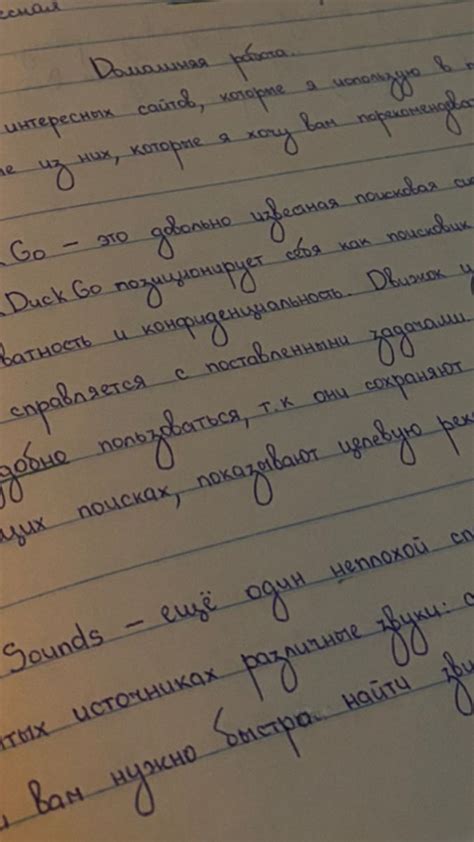 есная
Домашняя работа.
интересных сайтов, которые я использую в п
ие из них, которые я хочу вам порекомендова
Go – это довольно извесная поисковая си
DuckGo позиционирует себя как поисковик
ватность и конфиденциальность. Движок и
справляется с поставленными задачами.
удобно пользоваться, т.к они сохраняют
щих поисках, показывают целевую рек
Sounds – ещё один неплохой сп
ытых источниках различные звуки:
вам нужно быстро найти зву